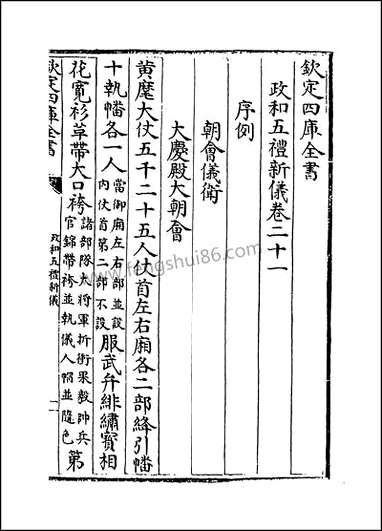 欽定四庫全書
政和五禮新儀卷二十一
序例
朝會儀衛
大慶殿大朝會
黄麾大仗五千二十五人仗首左右廂各二部絳引幡
十執幡各一人當御廂左右部並設内仗首第二部不設服武弁緋繡寶相
花寛衫革帶大口袴諸部隊大將軍折衝果毅帥兵官錦帶袴並執儀人帽並隨色第
欽定四庫全書
政和五禮新儀
一
www.fengshui86.com